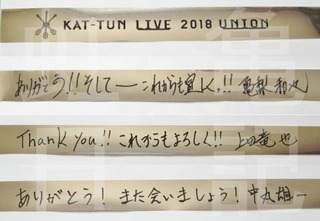 KAT-TUN LIVE 2018 UNION
ありがとう!!そしてーこれからも宜しく!! 亀梨和也
Thank you!! これからもよろしく!! 上田竜也
ありがとう! また会いましょう! 中丸雄一